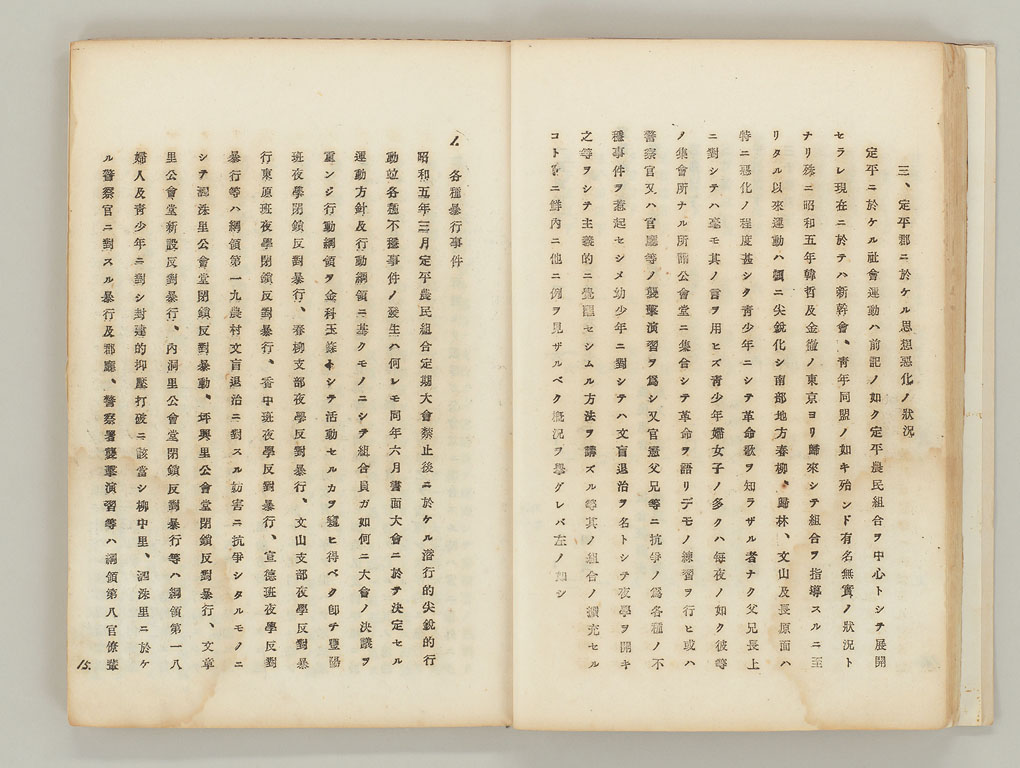 三、定平郡ニ於ケル思想惡化ノ狀況
定平ニ於ケル社會運動ハ前記ノ如ク定平農民組合ヲ中心トシテ展開
セラレ現在ニ於テハ新幹會、靑年同盟ノ如キ殆ンド有名無實ノ狀況ト
ナリ殊ニ昭和五年韓哲及金澂ノ東京ヨリ歸來シテ組合ヲ指導スルニ至
リタル以來運動ハ頓ニ尖銳化シ南部地方春柳、歸林、文山及長原面ハ
特ニ惡化ノ程度甚シク靑少年ニシテ革命歌ヲ知ラザル者ナク父兄長上
ニ對シテハ毫モ其ノ言ヲ用ヒズ靑少年婦女子ノ多クハ每夜ノ如ク彼等
ノ集會所ナル所謂公會堂ニ集合シテ革命ヲ語リデモノ練習ヲ行ヒ或ハ
警察官又ハ官廳等ノ襲擊演習ヲ爲シ又官憲父兄等ニ抗爭ノ爲各種ノ不
穩事件ヲ惹起セシメ幼少年ニ對シテハ文盲退治ヲ名トシテ夜學ヲ開キ
之等ヲシテ主義的ニ覺醒セシムル方法ヲ講ズル等其ノ組合ノ擴充セル
コト實ニ鮮內ニ他ニ例ヲ見ザルベク概況ヲ擧グレバ左ノ如シ
1. 各種暴行事件
昭和五年三月定平農民組合定期大會禁止後ニ於ケル潛行的尖銳的行
動竝各種不穩事件ノ發生ハ何レモ同年六月書面大會ニ於テ決定セル
運動方針及行動綱領ニ基クモノニシテ組合員ガ如何ニ大會ノ決議ヲ
重ンジ行動綱領ヲ金科玉條トシテ活動セルカヲ窺ヒ得ベク卽チ豐陽
班夜學閉鎖反對暴行、春柳支部夜學反對暴行、文山支部夜學反對暴
行東原班夜學閉鎖反對暴行、香中班夜學反對暴行、宣德班夜學反對
暴行等ハ綱領第一九農村文盲退治ニ對スル妨害ニ抗爭シタルモノニ
シテ泗洙里公會堂閉鎖反對暴動、坪興里公會堂閉鎖反對暴行、文章
里公會堂新設反對暴行、內洞里公會堂閉鎖反對暴行等ハ綱領第一八
婦人及靑少年ニ對シ封建的抑壓打破ニ該當シ柳中里、泗洙里ニ於ケ
ル警察官ニ對スル暴行及郡廳、警察署襲擊演習等ハ綱領第八官僚輩
15.